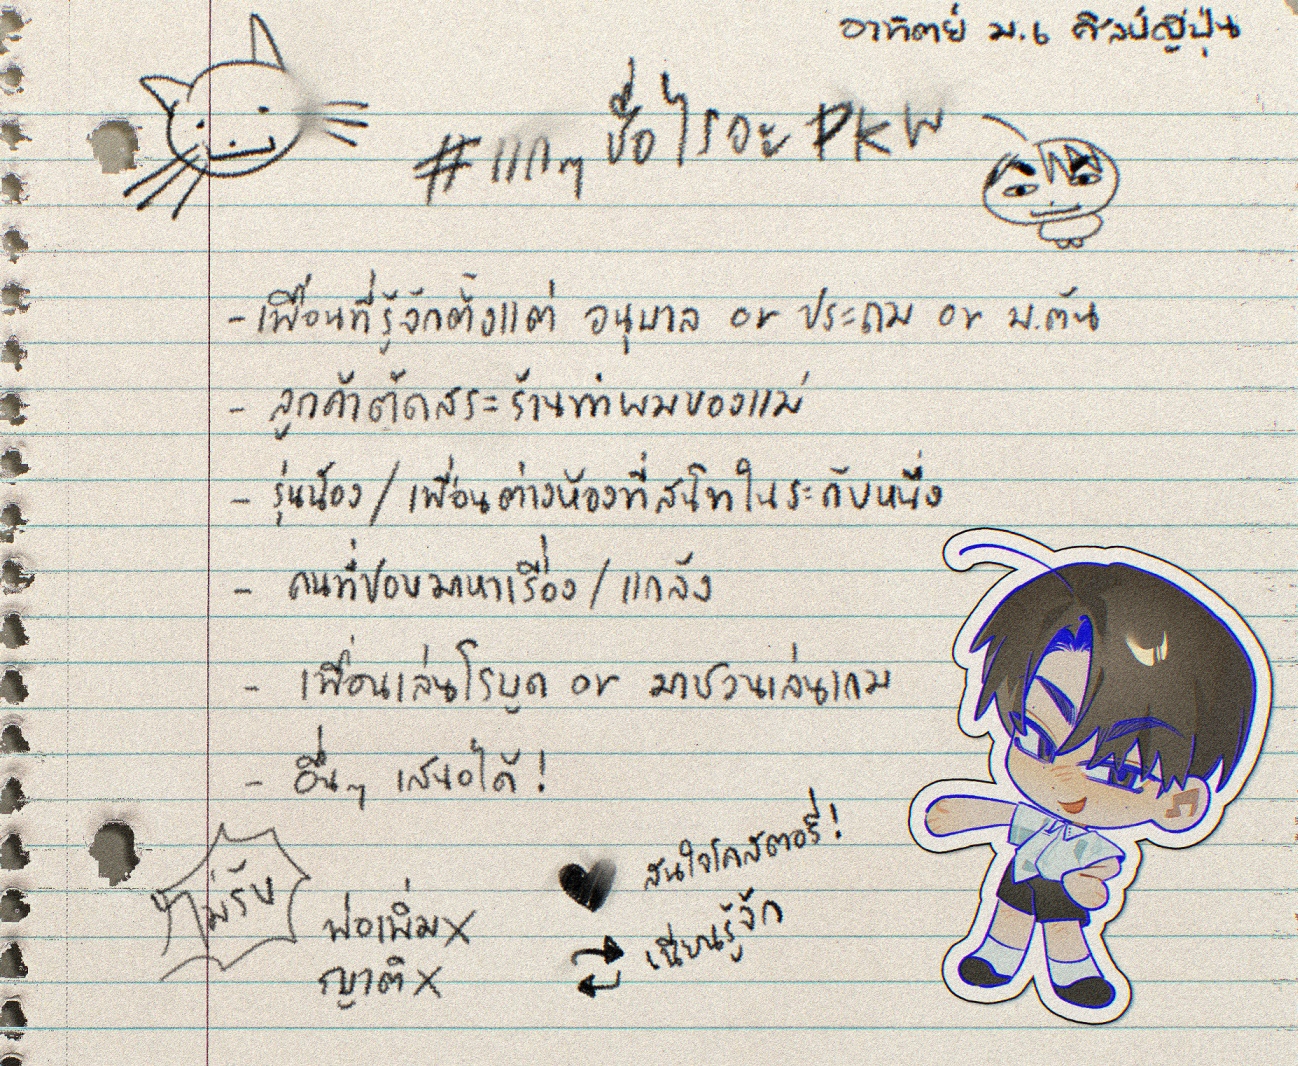 อาทิตย์ ม.6 ศิลป์ญี่ปุ่น
#แกๆ ชื่อไรอะ PKW
- เพื่อนที่รู้จักตั้งแต่ อนุบาล or ประถม or ม.ต้น
- ลูกค้าตัดสระร้านทำผมของแม่
- รุ่นน้อง / เพื่อนต่างห้องที่สนิทในระดับหนึ่ง
- คนที่ชอบมาหาเรื่อง / แกล้ง
- เพื่อนเล่นโรบูด or มาชวนเล่นเกม
- อื่นๆ เสนอได้ !
ไม่รับ
พ่อเพิ่ม X
ญาติ X
สนใจโคสตอรี่ !
เนียนรู้จัก